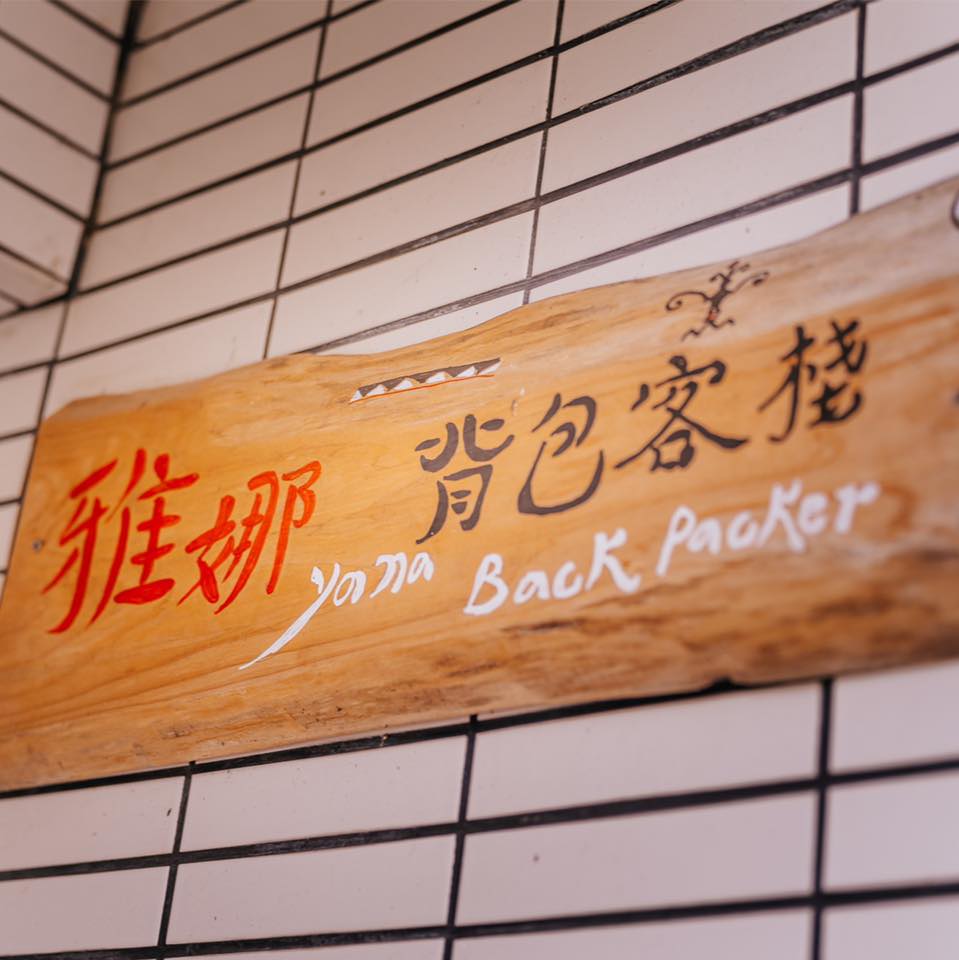 雅娜 背包客栈
yana Back Packer